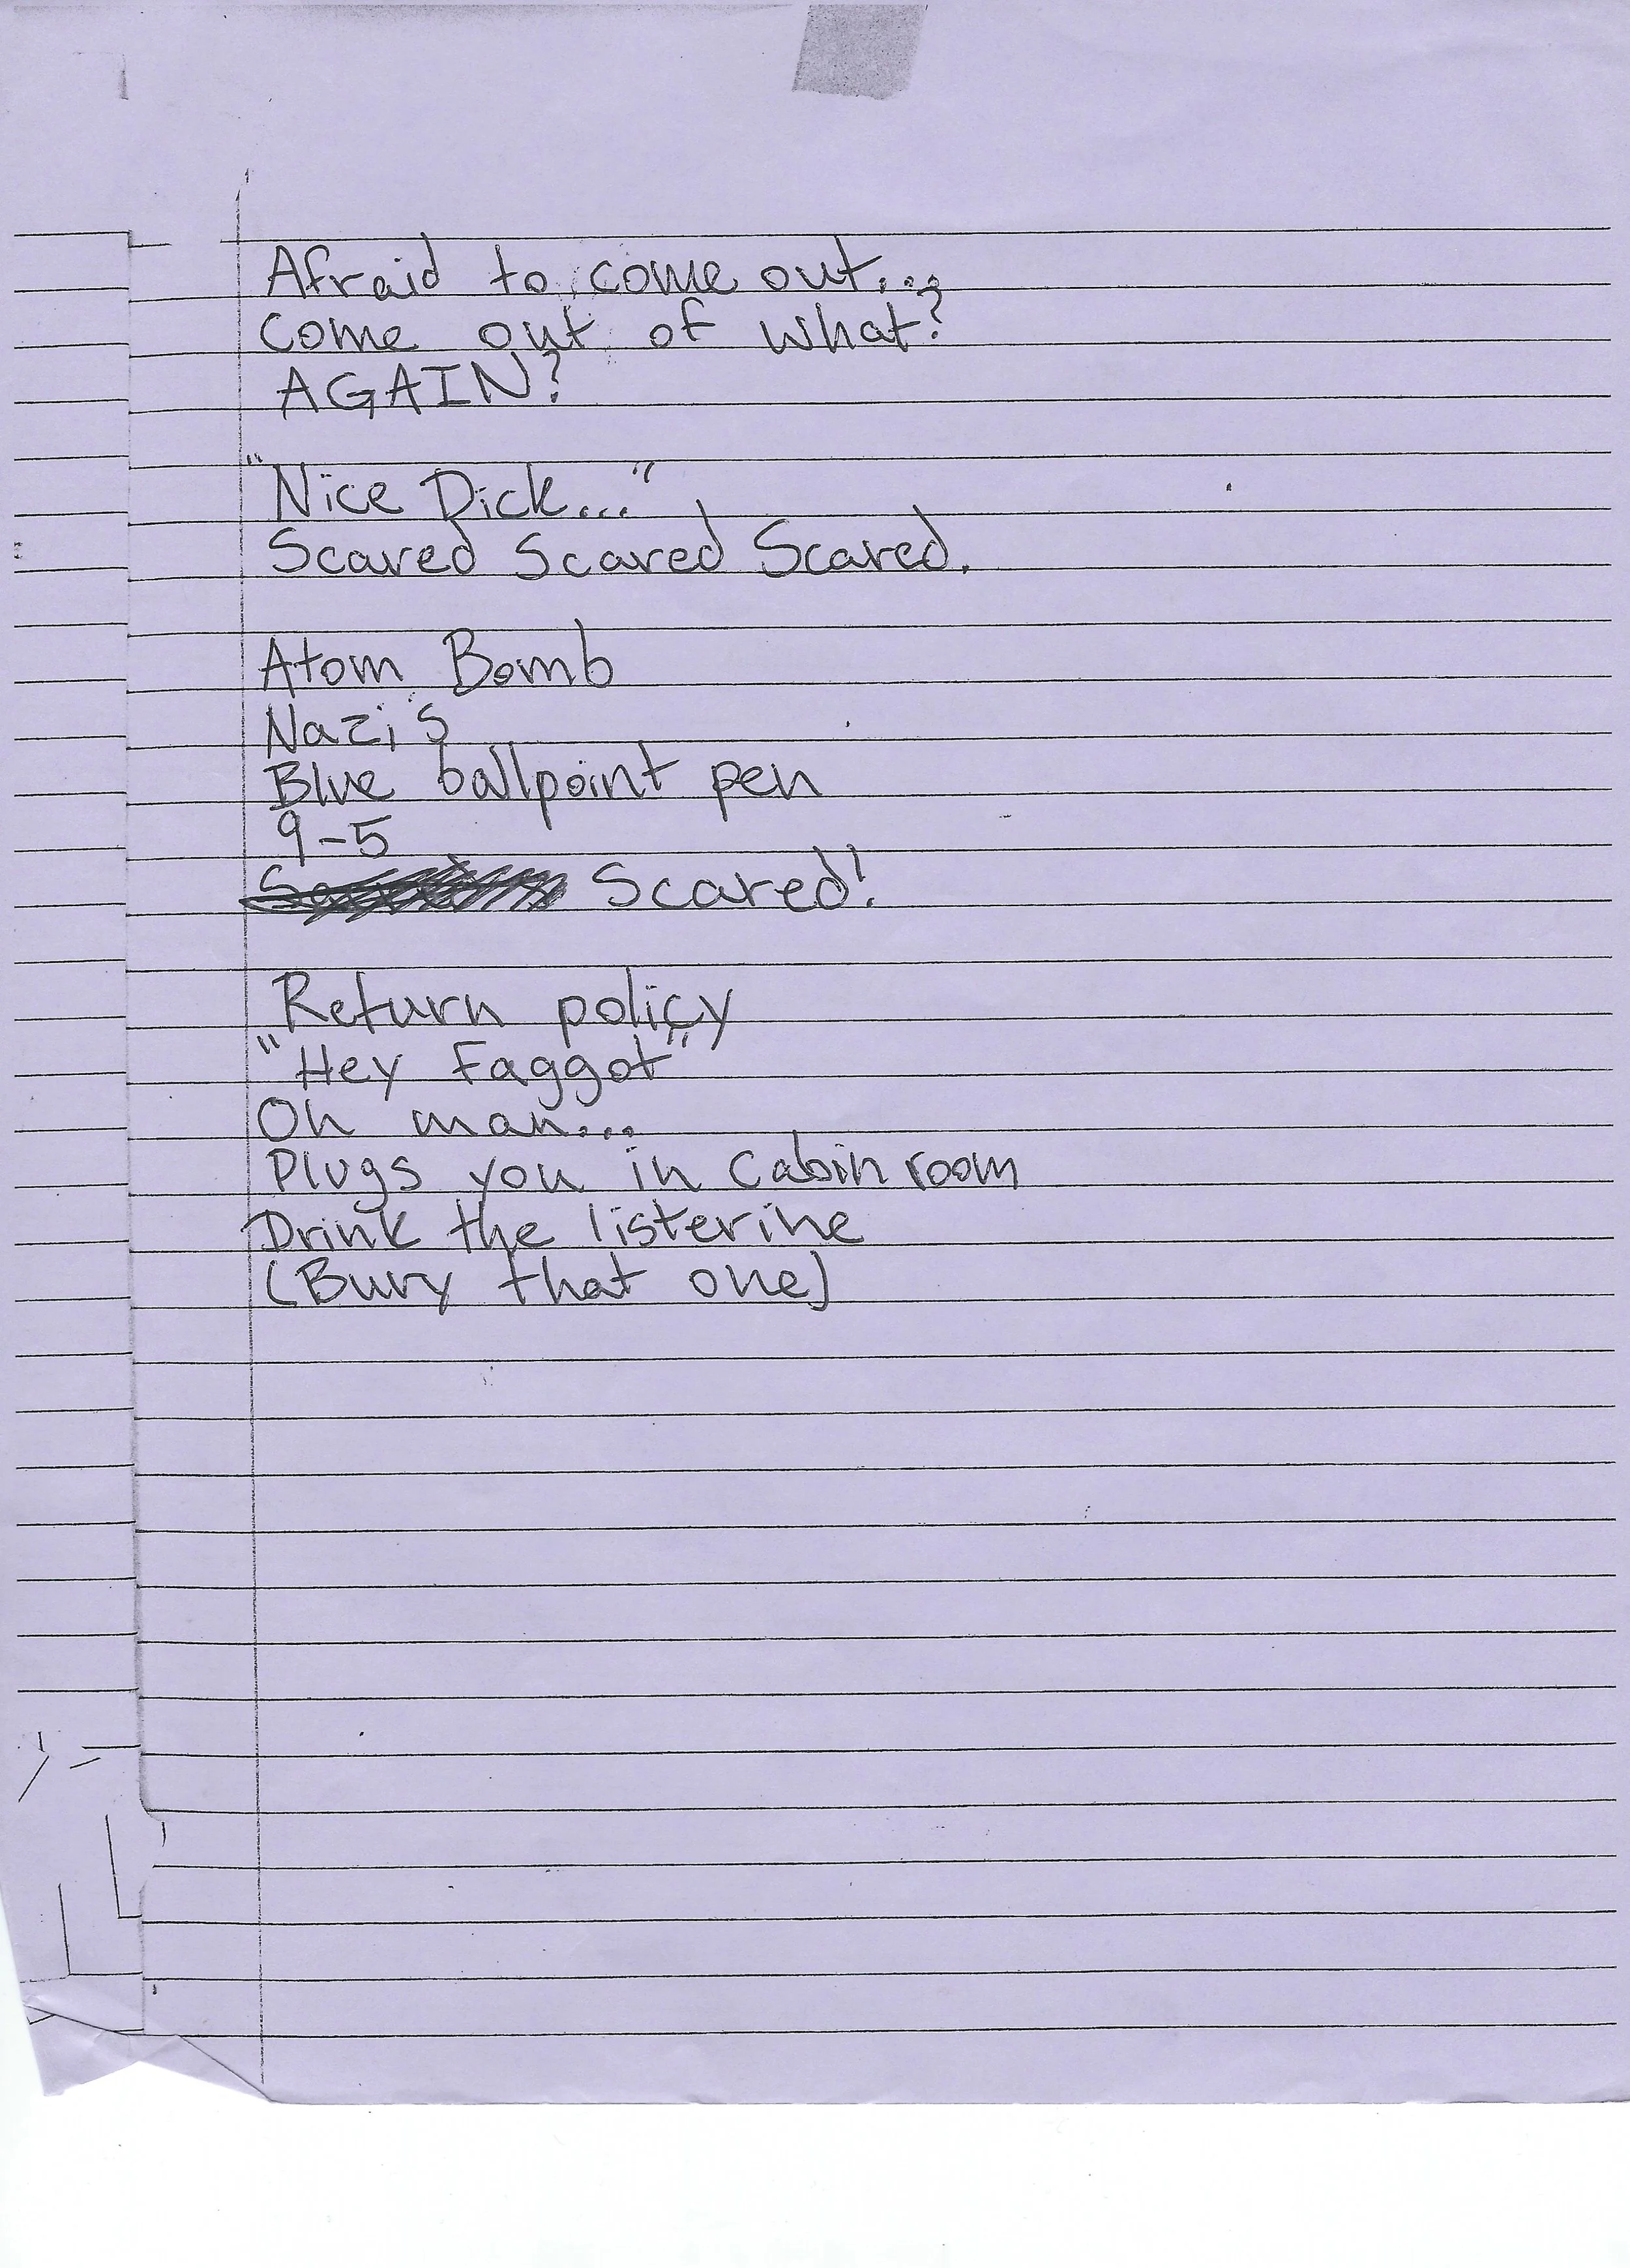 Afraid to come out...
Come out of what?
AGAIN?
"Nice Dick..."
Scared Scared Scared.
Atom Bomb
Nazi's
Blue ballpoint pen
9-5
Scared!
Return policy
"Hey Faggot"
Oh man...
Plugs you in cabin room
Drink the listerine
(Bury that one)